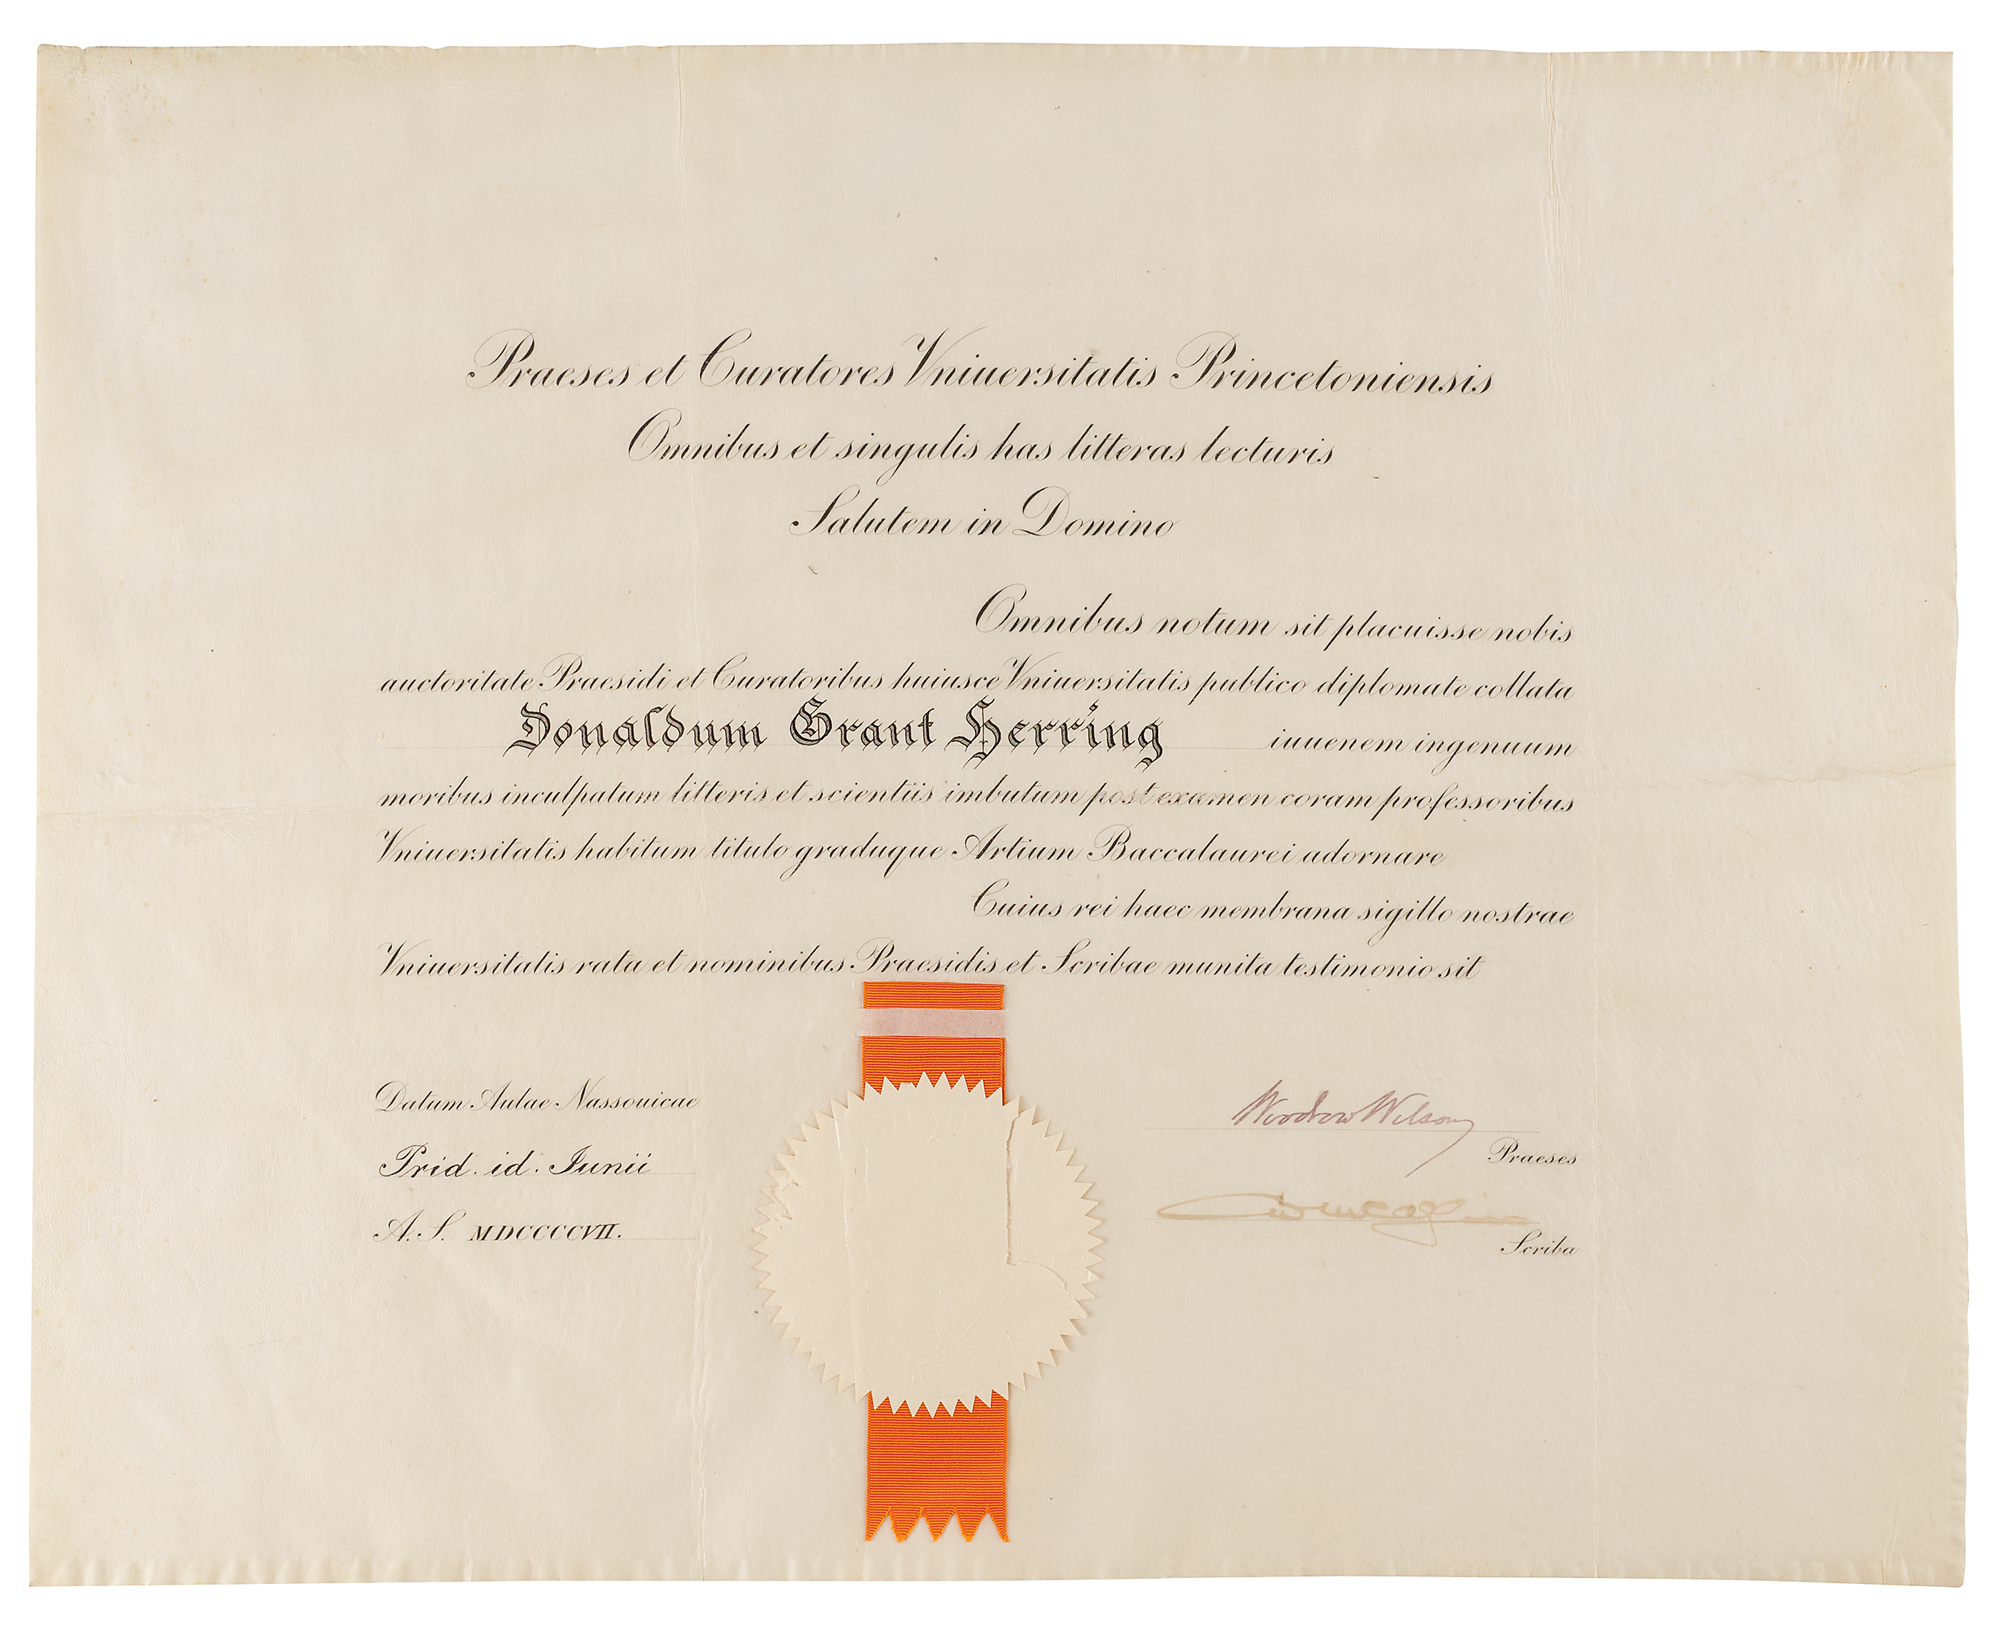 Praeses et Curatores Vniuersitatis Princetoniensis
Omnibus et singulis has litteras lecturis
Salutem in Domino
Omnibus notum sit placuisse nobis
auctoritate Praesidi et Curatoribus huiusce Vniuersitatis publico diplomate collata
Donaldum Grant Herring iuuenem ingenuum
moribus inculpatum litteris et scientiis imbutum post examen coram professoribus
Vniuersitatis habitum titulo graduque Artium Baccalaurei adornare
Cuius rei haec membrana sigillo nostrae
Vniuersitatis rata et nominibus Praesidis et Scribae munita testimonio sit
Datum Aulae Nassouicae
Prid. id. Iunii
A. S. MDCCCCVII.
Woodrow Wilson
Praeses
Scriba